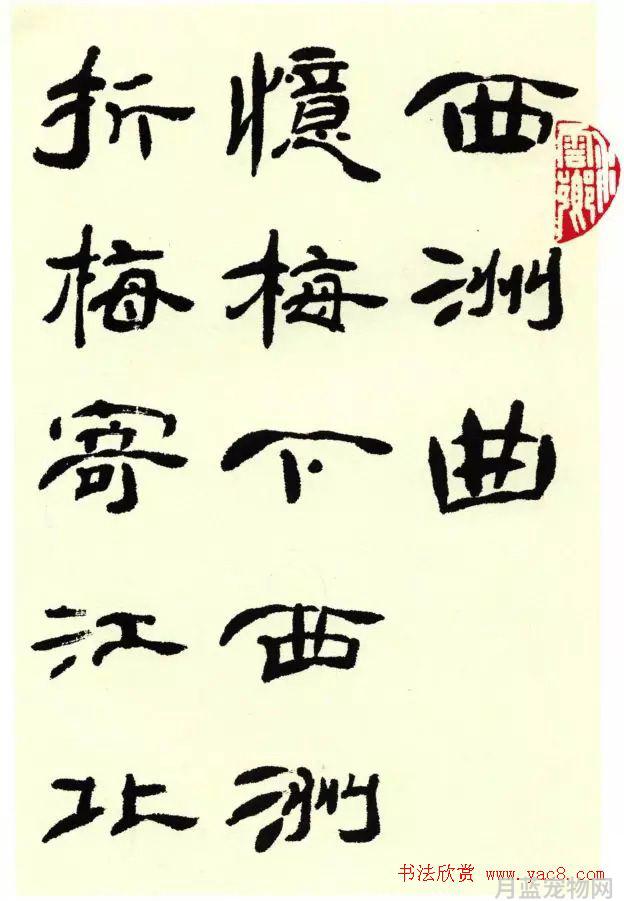 西洲曲
憶梅下西洲
折梅寄江北
书法欣赏 www.yac8.com
月蓝宠物网